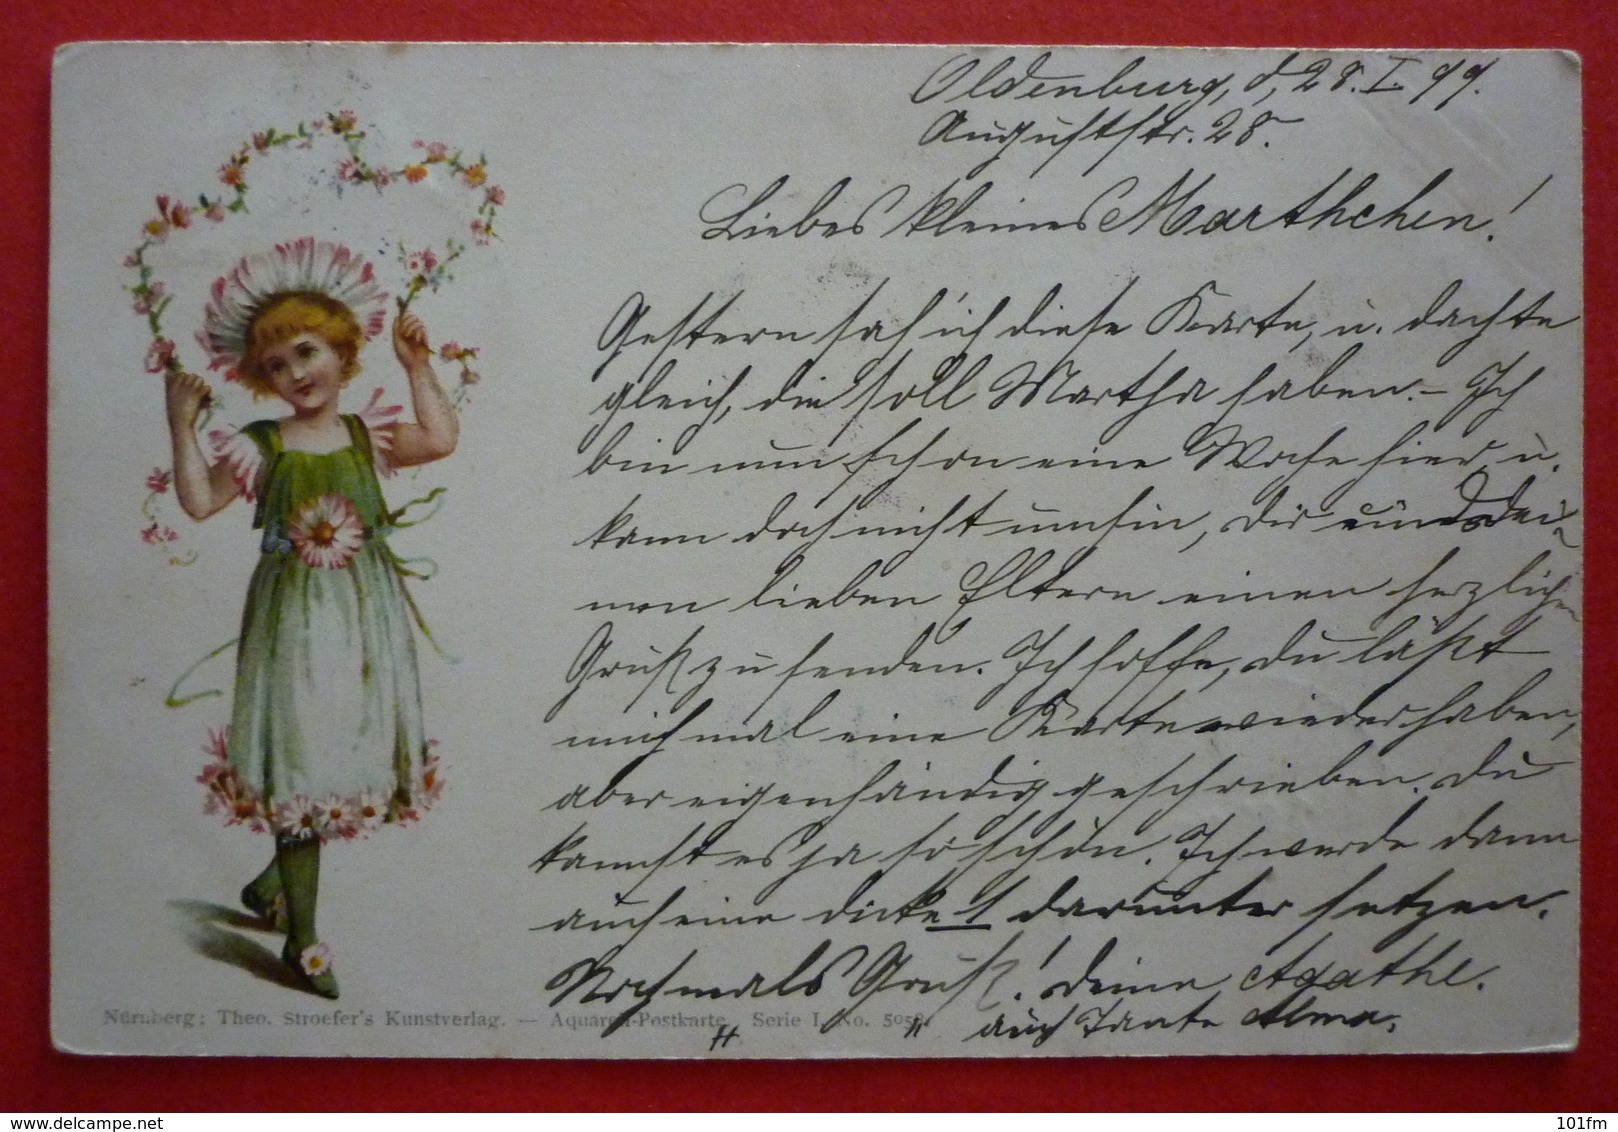 Oldenburg, d. 28. I. 99.
Auguststr. 28.
Liebes kleines Marthchen!
Gestern sah ich diese Karte, u. dachte
gleich, die soll Martha haben. – Ich
bin nun schon eine Woche hier u.
kann doch nicht umhin, dir und dei-
nen lieben Eltern einen herzlichen
Gruß zu senden. Ich hoffe, du läßt
mich mal eine Karte wieder haben,
aber eigenhändig geschrieben. Du
kannst es ja so schön. Ich werde dann
auch eine dicke 1 darunter setzen.
Nochmals Gruß! Deine Agathe.
" " auch Tante Alma.
Nürnberg: Theo. Stroefer's Kunstverlag. — Aquarell-Postkarte. Serie I. No. 5058.
delcampe.net
101fm